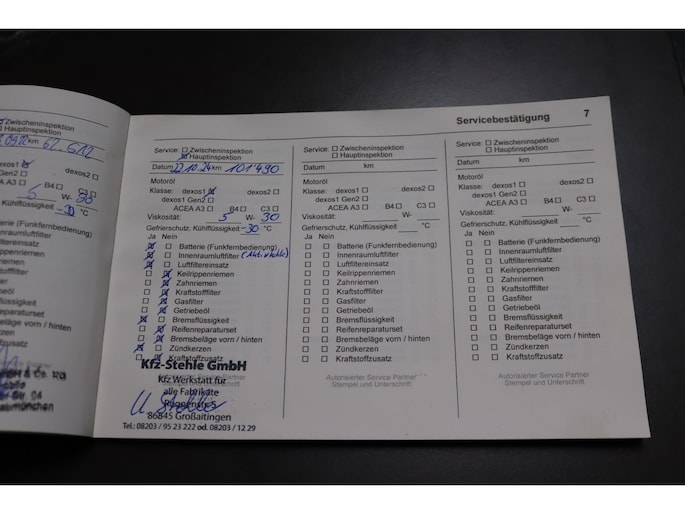 Servicebestätigung 7
Zwischeninspektion
Hauptinspektion
km 62.512
dexos2
Gen2
ACEA A3 B4 C3
5 W- 30
Kühlflüssigkeit -30 °C
(Funkfernbedienung)
luftfilter
einsatz
riemen
iemen
filter
eöl
lüssigkeit
reparaturset
beläge vorn / hinten
erzen
offzusatz
Service: Zwischeninspektion
Hauptinspektion
Datum 22.10.24 km 101'490
Motoröl
Klasse: dexos1 dexos2
dexos1 Gen2
ACEA A3 B4 C3
Viskosität: 5 W- 30
Gefrierschutz, Kühlflüssigkeit -30 °C
Ja Nein
Batterie (Funkfernbedienung)
Innenraumluftfilter (Aktivkohle)
Luftfiltereinsatz
Keilrippenriemen
Zahnriemen
Kraftstofffilter
Gasfilter
Getriebeöl
Bremsflüssigkeit
Reifenreparaturset
Bremsbeläge vorn / hinten
Zündkerzen
Kraftstoffzusatz
Kfz-Stehle GmbH
Autorisierter Service Partner
Stempel und Unterschrift
Kfz Werkstatt für
alle Fabrikate
86845 Großaitingen
Tel.: 08203 / 95 23 222 od. 08203 / 12 29
Service: Zwischeninspektion
Hauptinspektion
Datum km
Motoröl
Klasse: dexos1 dexos2
dexos1 Gen2
ACEA A3 B4 C3
Viskosität: W-
Gefrierschutz, Kühlflüssigkeit °C
Ja Nein
Batterie (Funkfernbedienung)
Innenraumluftfilter
Luftfiltereinsatz
Keilrippenriemen
Zahnriemen
Kraftstofffilter
Gasfilter
Getriebeöl
Bremsflüssigkeit
Reifenreparaturset
Bremsbeläge vorn / hinten
Zündkerzen
Kraftstoffzusatz
Autorisierter Service Partner
Stempel und Unterschrift
Service: Zwischeninspektion
Hauptinspektion
Datum km
Motoröl
Klasse: dexos1 dexos2
dexos1 Gen2
ACEA A3 B4 C3
Viskosität: W-
Gefrierschutz, Kühlflüssigkeit °C
Ja Nein
Batterie (Funkfernbedienung)
Innenraumluftfilter
Luftfiltereinsatz
Keilrippenriemen
Zahnriemen
Kraftstofffilter
Gasfilter
Getriebeöl
Bremsflüssigkeit
Reifenreparaturset
Bremsbeläge vorn / hinten
Zündkerzen
Kraftstoffzusatz
Autorisierter Service Partner
Stempel und Unterschrift